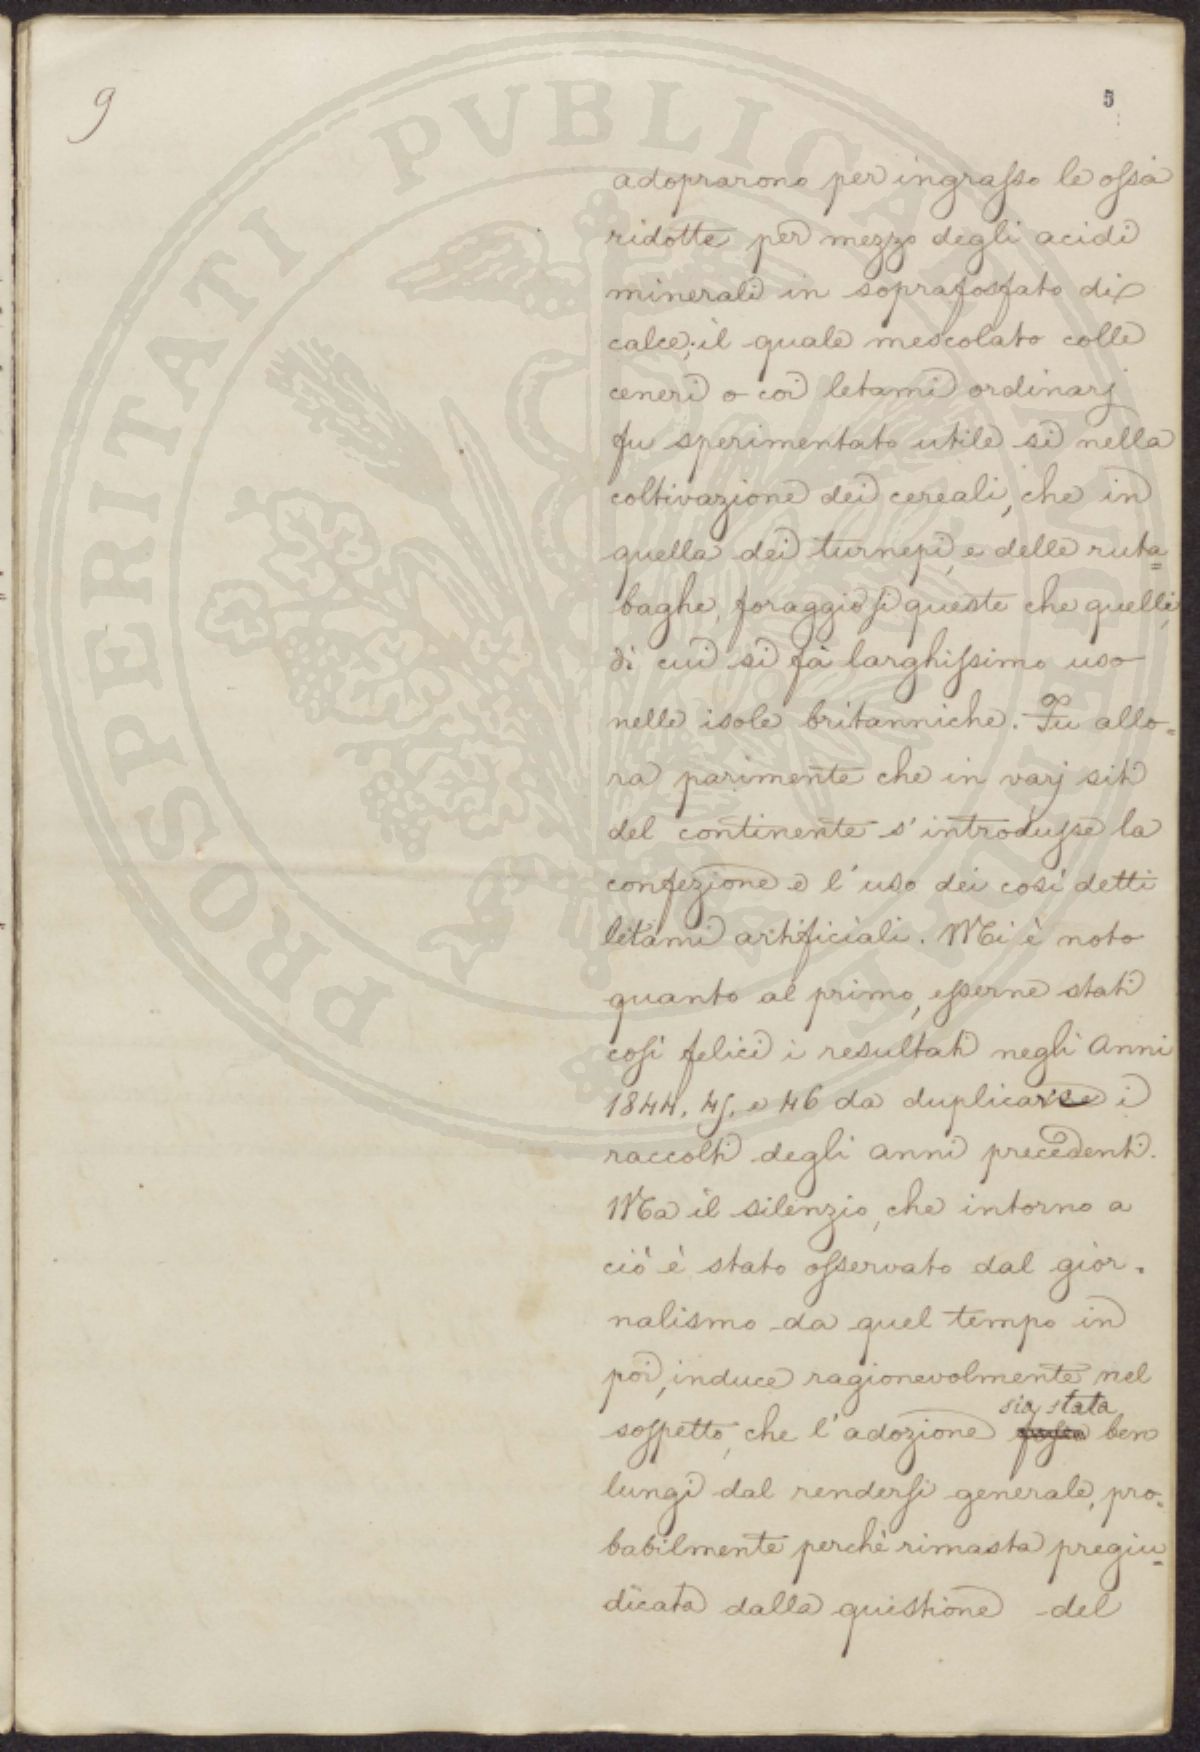 9
5
adoprarono per ingrasso le ossa
ridotte per mezzo degli acidi
minerali in soprafosfato di
calce; il quale mescolato colle
ceneri o coi letami ordinarj
fu sperimentato utile sì nella
coltivazione dei cereali, che in
quella dei turnepi, e delle ruta=
baghe, foraggio sì queste che quelli,
di cui si fà larghissimo uso
nelle isole britanniche. Fu allo=
ra parimente che in varj siti
del continente s'introdusse la
confezione e l'uso dei così detti
letami artificiali. Mi è noto
quanto al primo, esserne stati
così felici i resultati negli anni
1844, 45, e 46 da duplicarse i
raccolti degli anni precedenti.
Ma il silenzio, che intorno a
ciò è stato osservato dal gior=
nalismo da quel tempo in
poi, induce ragionevolmente nel
sia stata
sospetto, che l'adozione ben
lungi dal rendersi generale, pro=
babilmente perchè rimasta pregiu=
dicata dalla quistione del
PROSPERITATI PVBLICAE